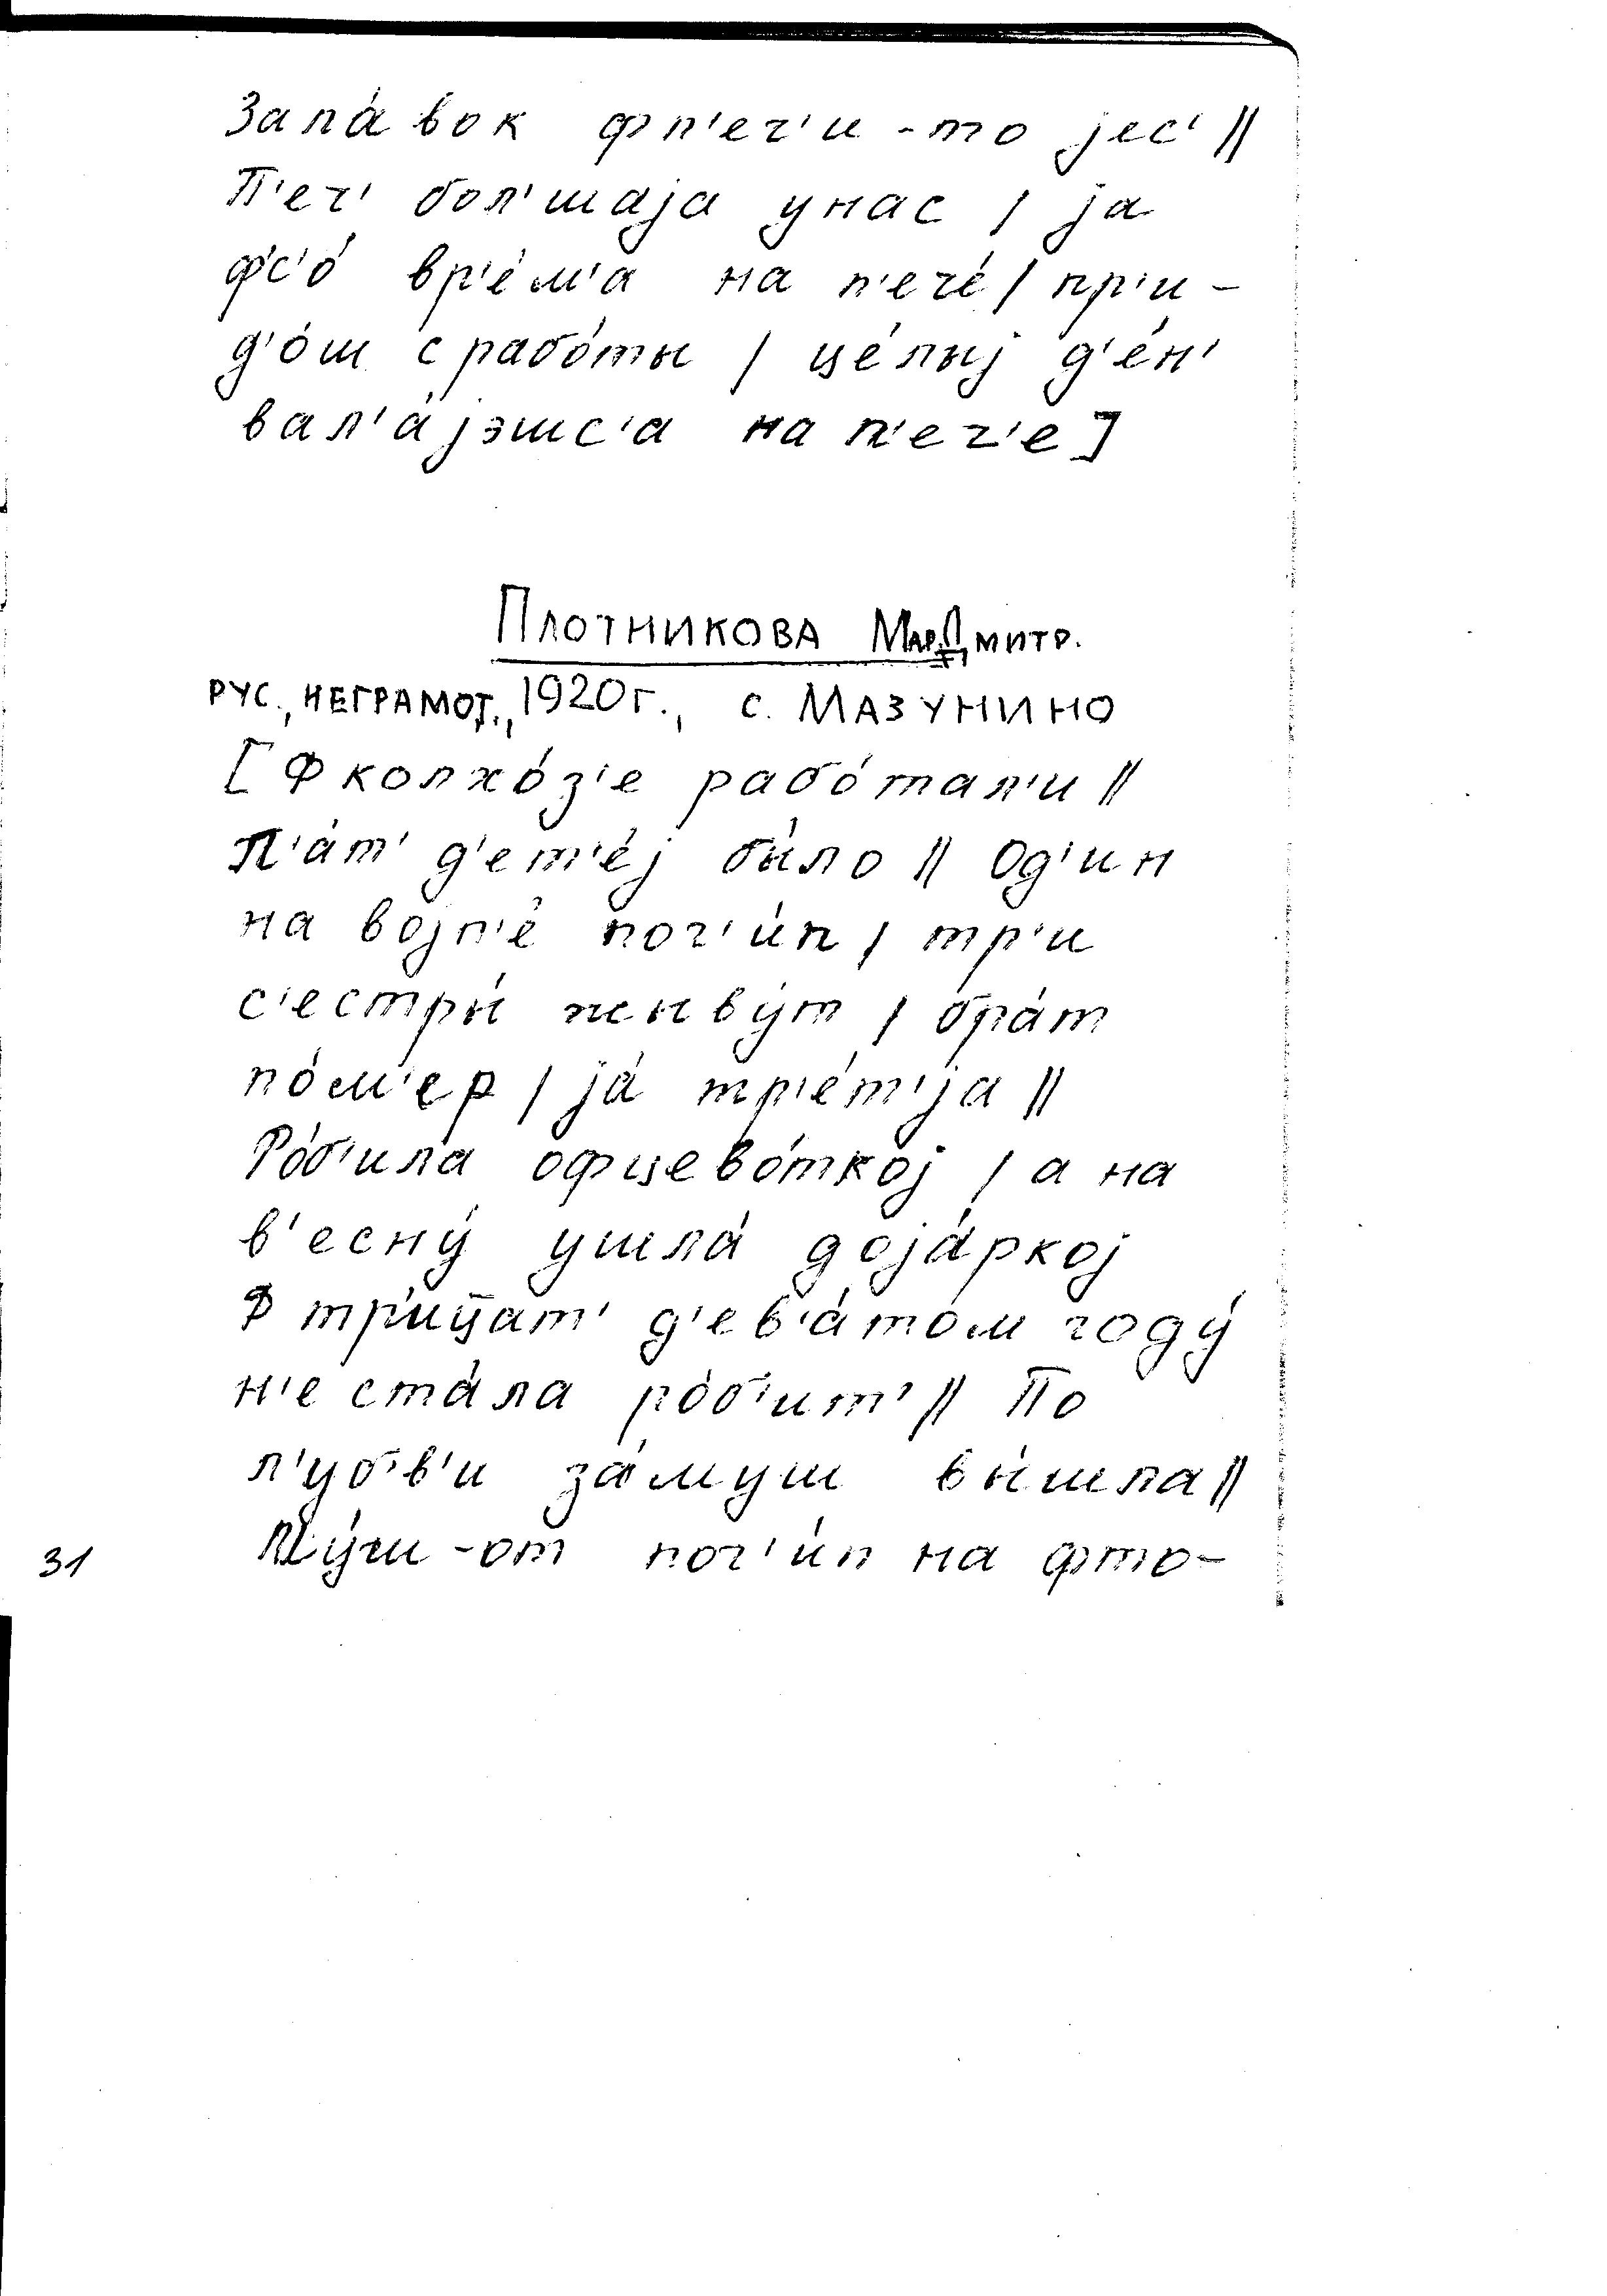 Запа́вок фп'еч'и-то jес' ||
П'еч' бол'шаjа унас / jа
ф'с'о́ вр'е́м'а на п'ече́ / пр'и-
д'о́ш с рабо́ты / це́лыj д'е́н'
вал'а́jэшс'а на п'еч'е]
Плотникова Мар. Дмитр.
рус., неграмот., 1920г., с. Мазунино
[Ф колхо́з'е рабо́тал'и ||
П'а́т' д'ет'е́j бы́ло || Од'ин
на воjн'е́ пог'и́п / тр'и
с'естры́ жыву́т / бра́т
по́м'ер / jа́ тр'е́т'jа ||
Ро́б'ила офцево́ткоj / а на
в'есну́ ушла́ доjа́ркоj
Ф тр'иц̄ат' д'ев'а́том году́
н'е ста́ла ро́б'ит' || По
л'уб'в'и за́муш вы́шла ||
Му́ш-от пог'и́п на фто-
31